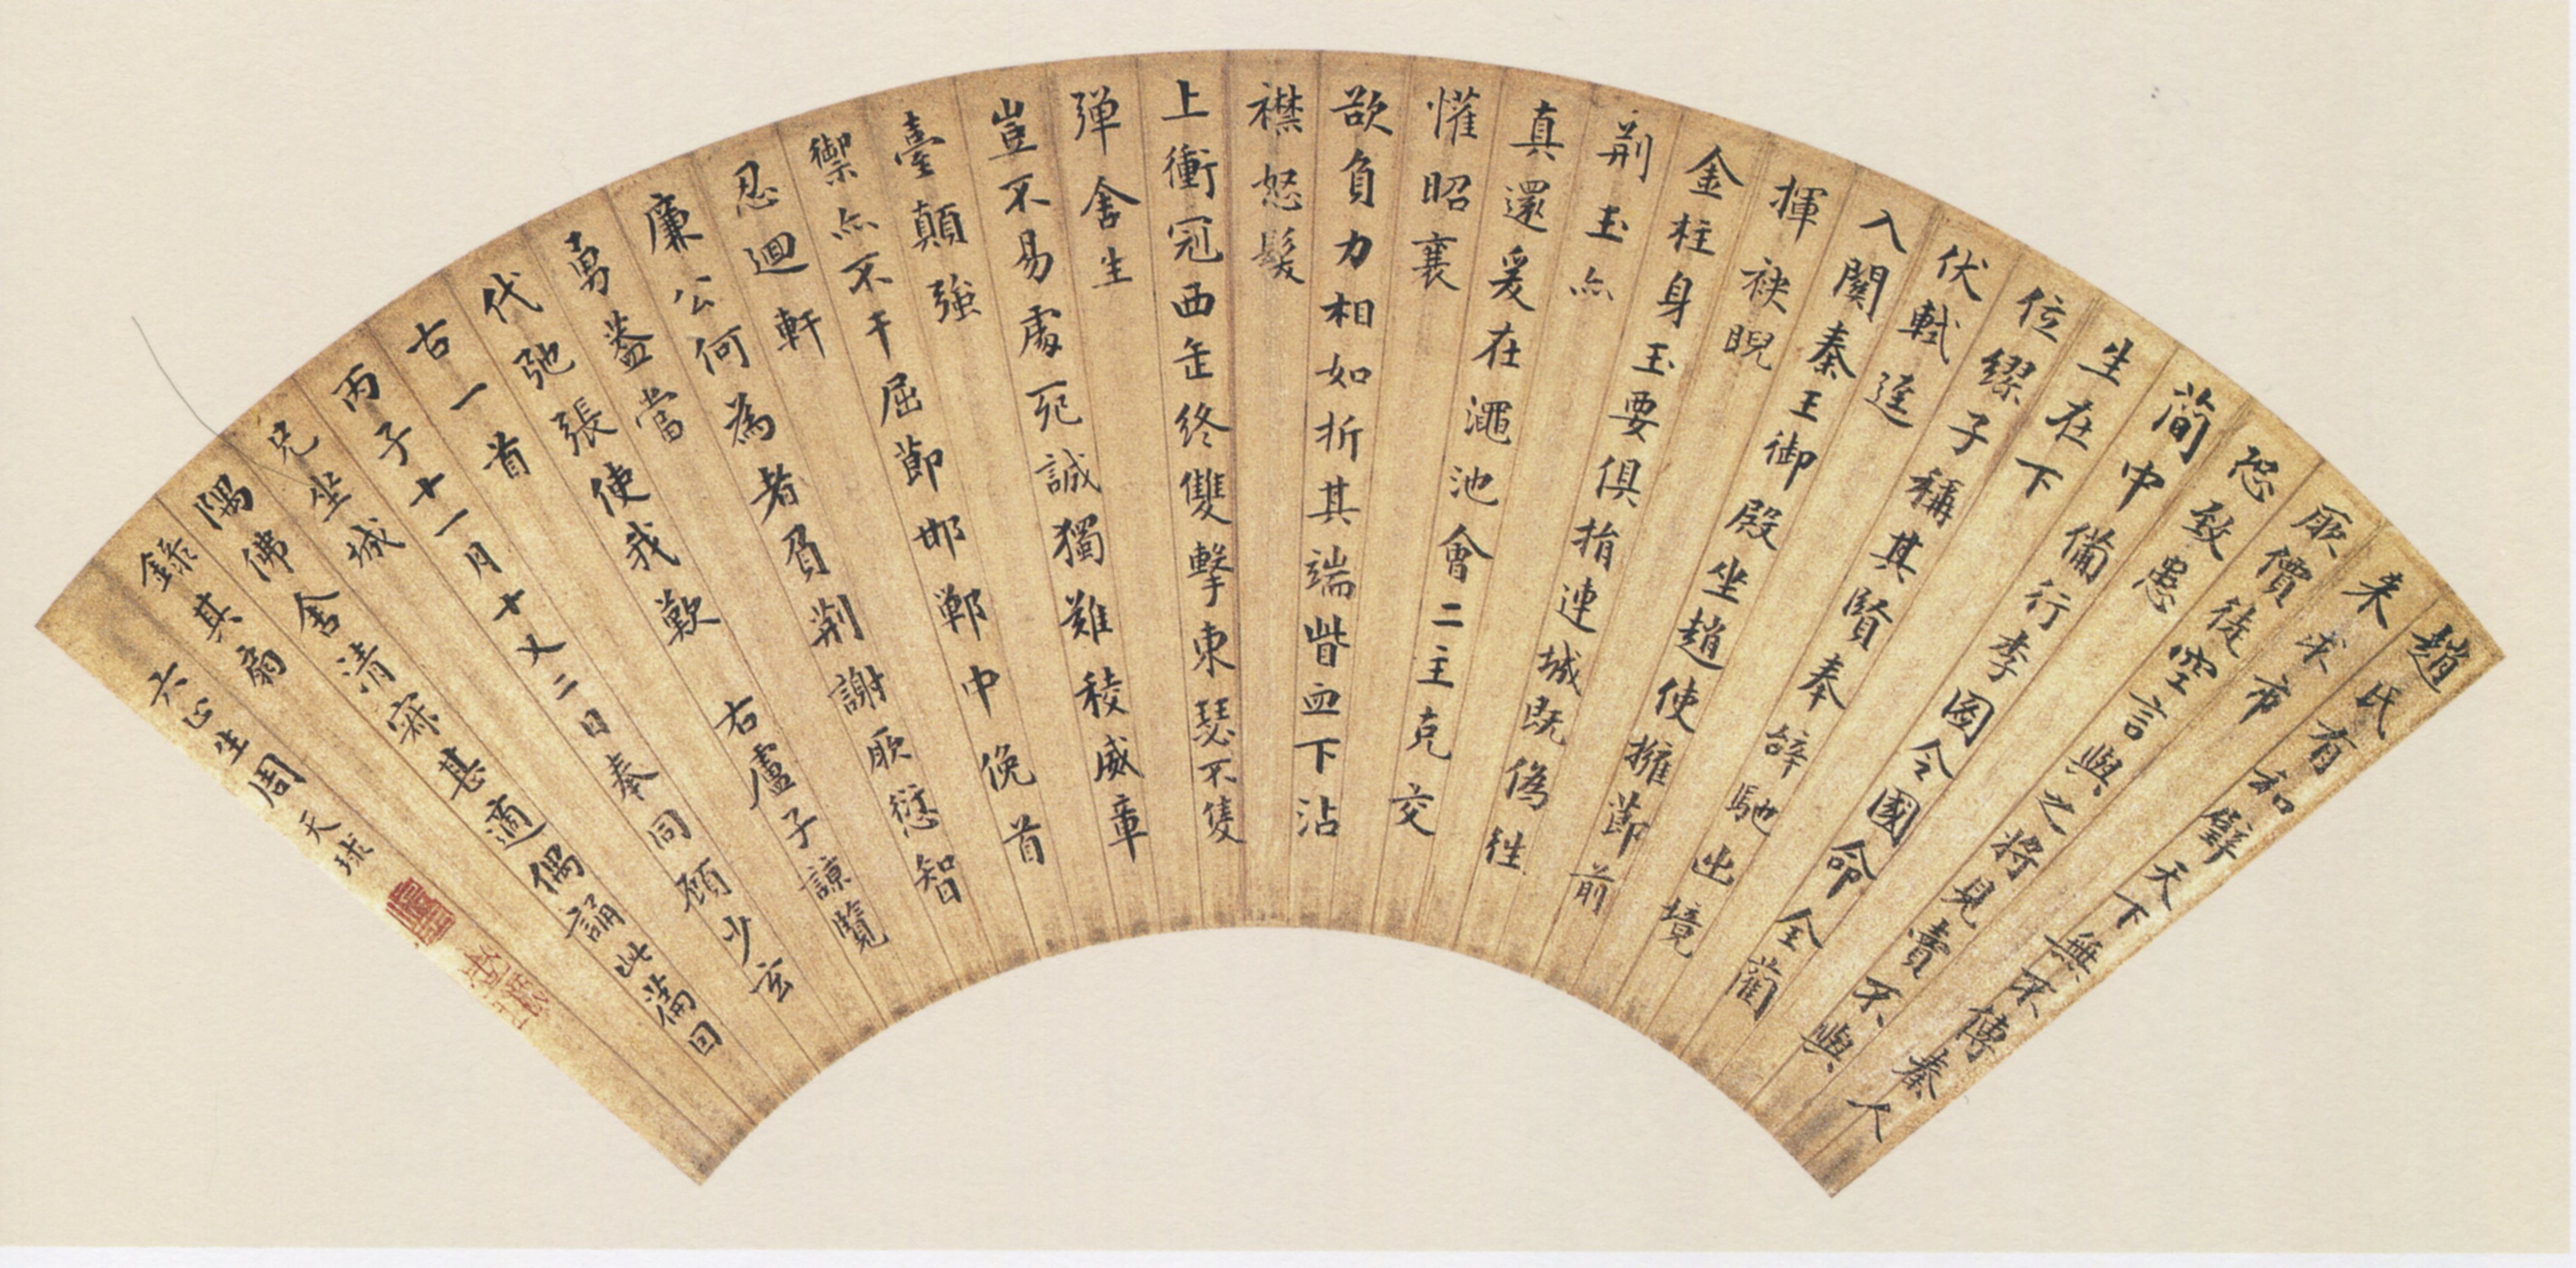 趙氏有和璧天下無不傳秦人
来求市
厥價徒空言與之將見賣不與
恐致患
簡中備行李圖令國命全藺
生在下
位繆子稱其賢奉辭馳出境
伏軾逕
入關秦王御殿坐趙使擁節前
揮袂睨
金柱身玉要俱捐連城既偽往
荊玉亦
真還爰在澠池會二主克交
懽昭襄
欲負力相如折其端眥血下沾
襟怒髮
上衝冠西缶終雙擊東瑟不隻
彈舍生
豈不易處死誠獨難稜威章
臺顛強
禦亦不干屈節邯鄲中俛首
忍迴軒
廉公何為者負荊謝厥愆智
勇蓋當
代弛張使我歎 右盧子諒覽
古一首
丙子十一月十又二日奉同顧少玄
兄坐城
隅佛舍清寂甚適偶誦此篇回
錄其扇
六止生周天球